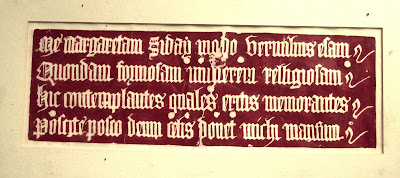 Me margaretam Siday modo vermibus esam
Quondam formosam mulierem religiosam
Hic contemplantes quales eritis memorantes
Poscite posco deum celis donet michi mansum